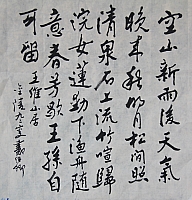 空山新雨後天氣
晚来秋明月松間照
清泉石上流竹喧歸
浣女蓮動下漁舟隨
意春芳歇王孫自
可留 王維山居